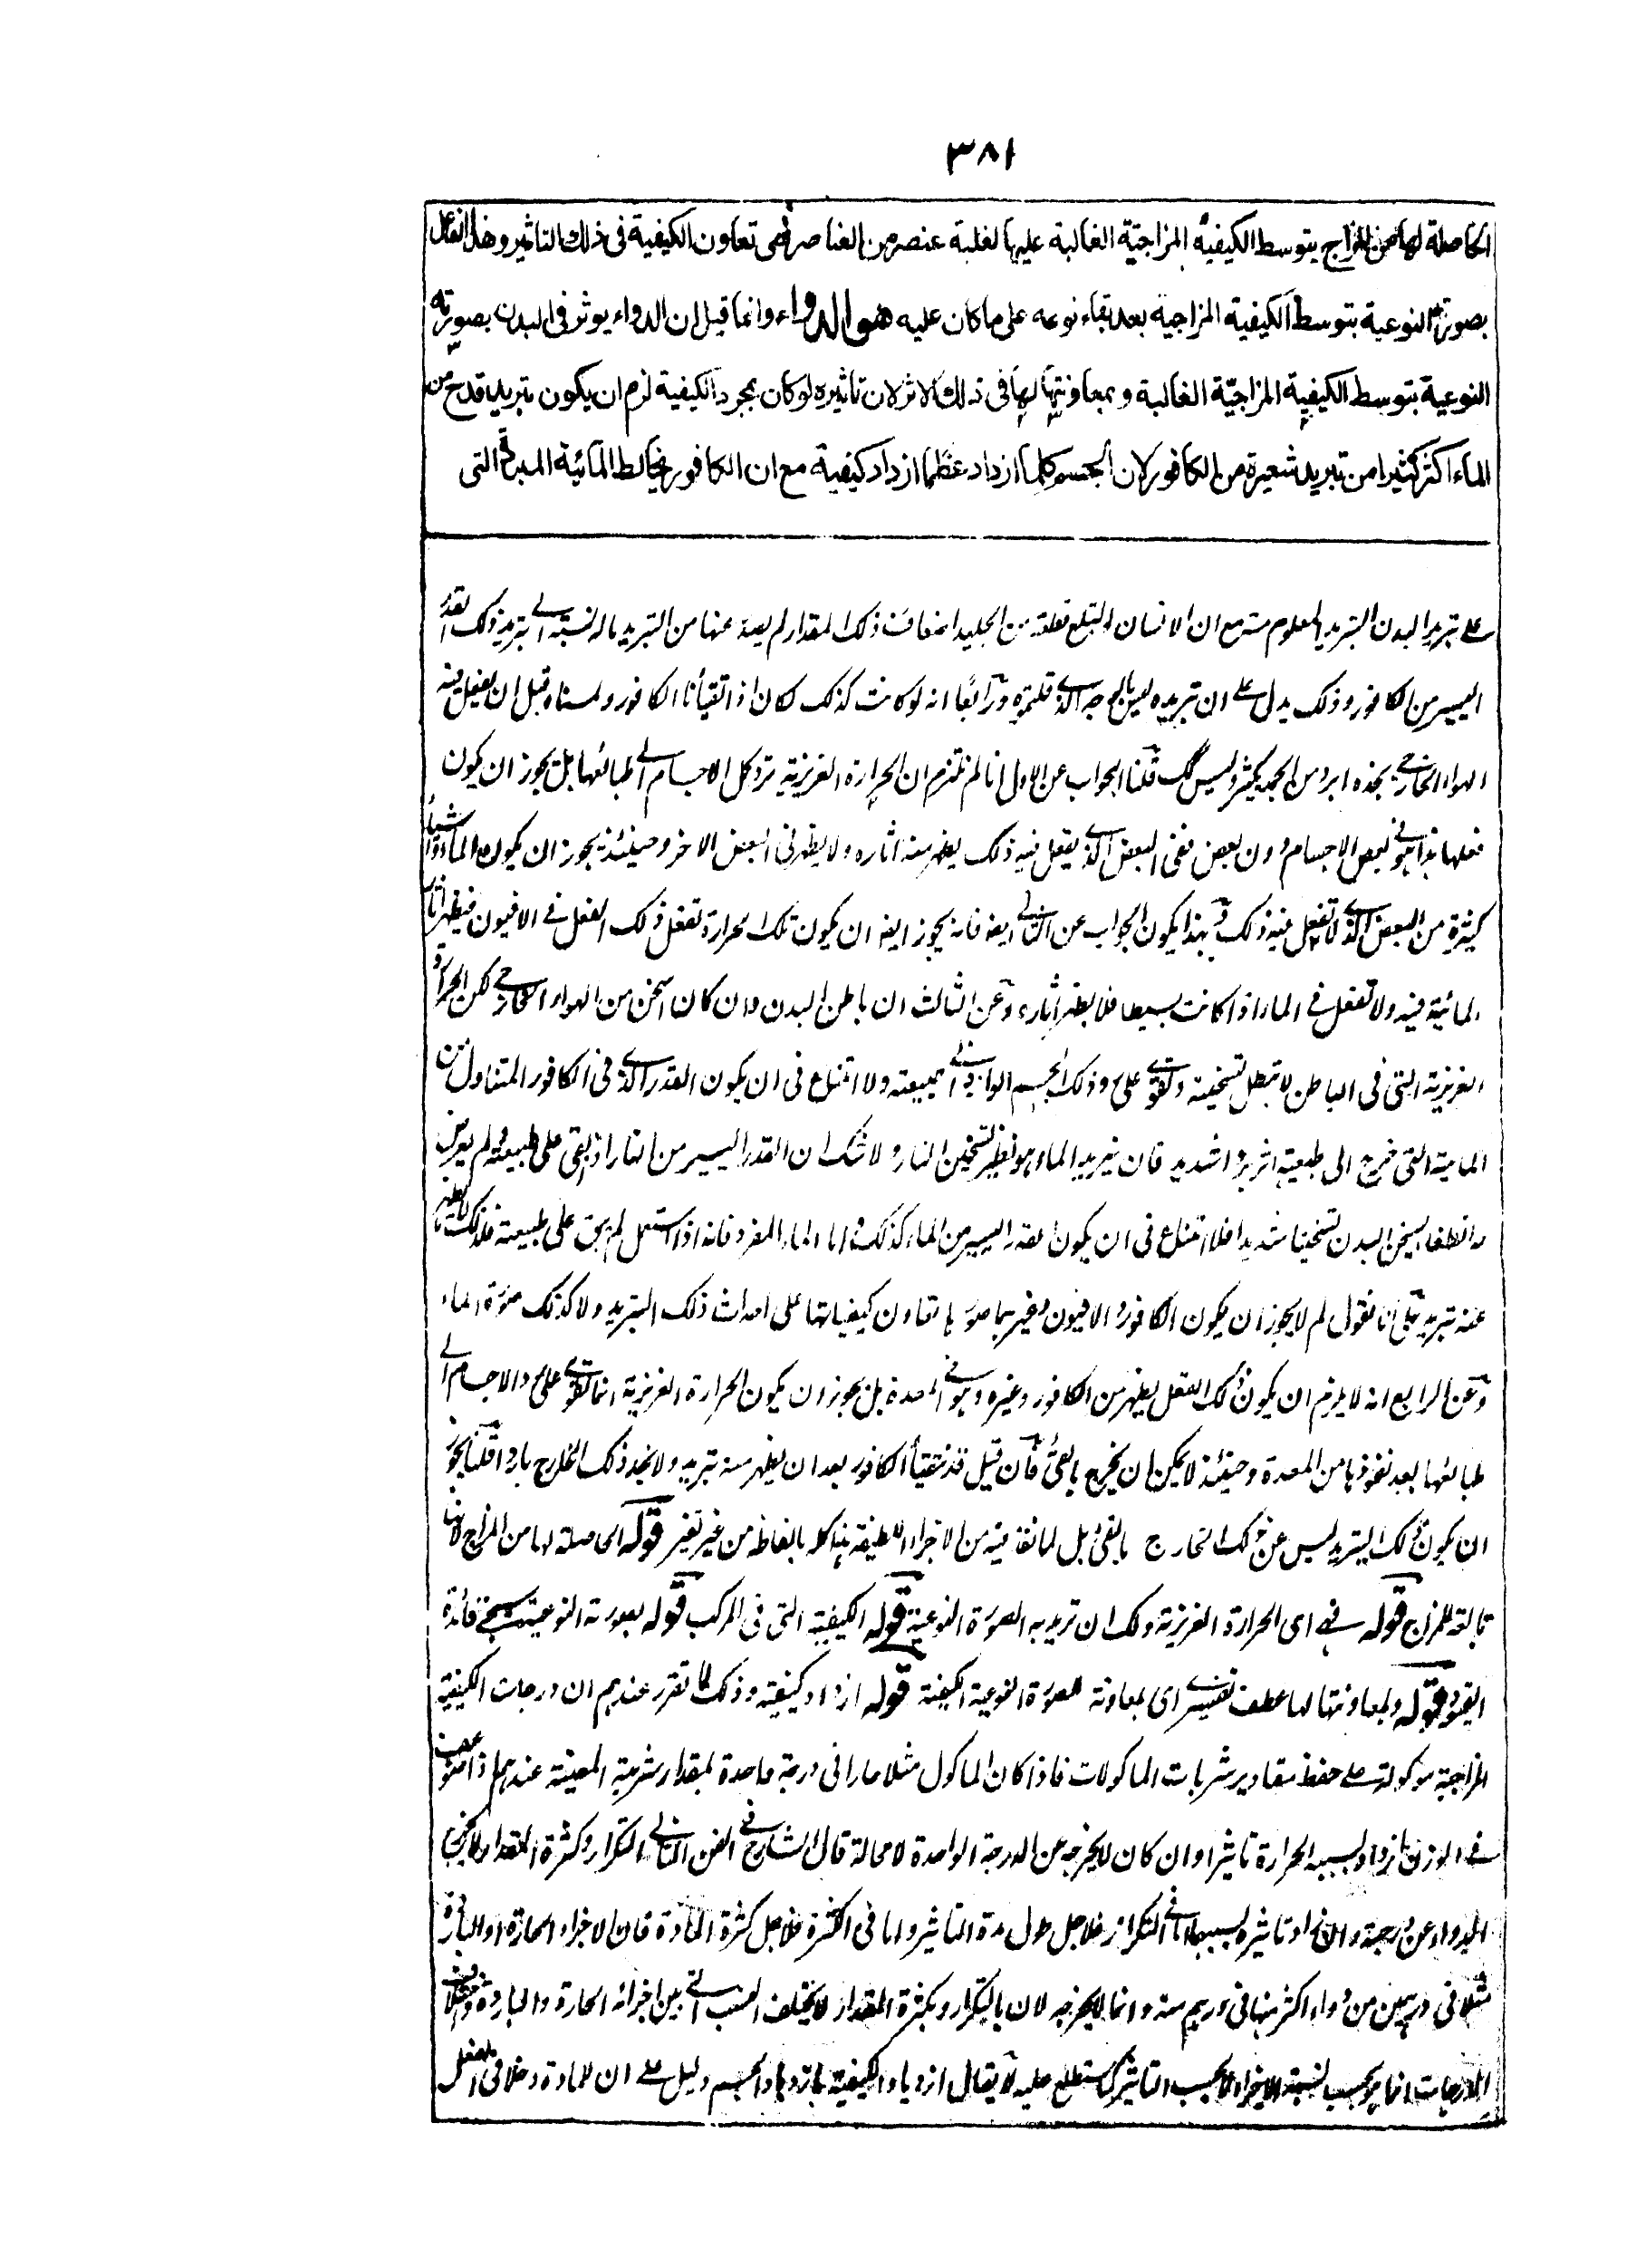 ٣٨١
الحاصلة لها من المزاج بتوسط الكيفية المزاجية الغالبة عليها لغلبة عنصر من العناصر فهى تعاون الكيفية فى ذلك التاثير وهذا الفاعل
بصورته النوعية بتوسط الكيفية المزاجية بعد بقاء نوعه على ما كان عليه هو الدواء وانما قيل ان الدواء يوثر فى البدن بصورته
النوعية بتوسط الكيفية المزاجية الغالبة وبمعاونتها لها فى ذلك الاثر لان تاثيره لو كان بمجرد الكيفية لزم ان يكون تبريد قدح من
الماء اكثر كثيرا من تبريد شعيرة من الكافور لان الجسم كلما ازداد عظما ازداد كيفية مع ان الكافور يخالط المائية المبردة التى
على تبريد البدن التبريد المعلوم منه مع ان الانسان لو ابتلع قطعة من الجليد اضعاف ذلك المقدار لم يصدر عنها من التبريد ماله نسبة الى تبريد ذلك القدر
اليسير من الكافور وذلك يدل على ان تبريده ليس بالوجه الذى قلتموه ورابعا انه لو كانت كذلك لكان اذا تقيأنا الكافور ولمسناه قبل ان يفعل فيه
الهواء الخارجى نجده ابرد من الجمد بكثير وليس كك قلنا الجواب عن الاول انا لم نلتزم ان الحرارة الغريزية ترد كل الاجسام الى طبائعها بل يجوز ان يكون
فعلها هذا هو فى بعض الاجسام دون بعض ففى البعض الذى يفعل فيه ذلك يظهر منه اثاره ولا يظهر فى البعض الاخر وحينئذ يجوز ان يكون الماء
كثيرة من البعض الذى لا تفعل فيه ذلك وبهذا يكون الجواب عن الثانى ايضا فانه يجوز ايضا ان يكون تلك الحرارة تفعل ذلك الفعل فى الافيون فيظهر اثار
المائية فيه ولا تفعل فى الماء اذا كانت بسيطا فلا يظهر اثاره وعن الثالث ان باطن البدن وان كان اسخن من الهواء الخارجى لكن الحرارة
الغريزية التى فى الباطن لا تبطل تسخينه وتقوى على رد ذلك الجسم الوارد الى طبيعته ولا امتناع فى ان يكون القدر الذى فى الكافور المتناول من
المائية التى خرج الى طبيعته اثر برد شديد فان تبريد الماء هو نظير تسخين النار ولا شك ان القدر اليسير من النار اذا بقى على طبيعته ولم يعرض
له انطفا يسخن البدن تسخينا شديدا فلا امتناع فى ان يكون القدر اليسير من الماء كذلك واما الماء المفرد فانه اذا استعمل لم يبق على طبيعته فلذلك لا يظهر
عنه تبريد بل انا نقول لم لا يجوز ان يكون الكافور والافيون وغيرهما صورها تعاون كيفياتها على احداث ذلك التبريد ولا كذلك صورة الماء
وعن الرابع انه لا يلزم ان يكون ذلك الفعل يظهر من الكافور وغيره وهو فى المعدة بل يجوز ان يكون الحرارة الغريزية انما تقوى على رد الاجسام الى
طبائعها بعد نفوذها من المعدة وحينئذ لا يمكن ان يخرج بالقئ فان قيل قد نتقيأ الكافور بعد ان يظهر منه تبريد ولا نجد ذلك الخارج باردا قلنا يجوز
ان يكون ذلك التبريد ليس عن ذلك الخارج بالقئ بل لما نفذ فيه من الاجزاء اللطيفة هذا كله بالفاظه من غير تغير قوله الحاصلة لها من المزاج لانها
تابعة للمزاج قوله فهى اى الحرارة الغريزية ولك ان تريد به الصورة النوعية قوله الكيفية التى فى المركب قوله بصورته النوعية سيجئ فائدة
القيود قوله ولمعاونتها لها عطف تفسيرى اى لمعاونة الصورة النوعية الكيفية قوله ازداد كيفيته وذلك لما تقرر عندهم ان درجات الكيفية
المزاجية موكولة على حفظ مقادير شربات الماكولات فاذا كان الماكول مثلا حارا فى درجة واحدة لمقدار شربته المعينة عندهم اذا ضوعف
فى الوزن ازداد لسببه الحرارة تاثيرا وان كان لا يخرجه عن الدرجة الواحدة لا محالة قال الشارح فى الفن الثانى التكرار وكثرة المقدار لا يخرج
الدواء عن درجته وان زاد تاثيره بسببها اما فى التكرار فلاجل طول مدة التاثير واما فى الكثرة فلاجل كثرة المادة فان الاجزاء الحارة او الباردة
مثلا فى درهمين من دواء اكثر منها فى درهم منه وانما لا يخرجه لان بالتكرار وبكثرة المقدار لا يختلف النسب التى بين اجزائه الحارة والباردة
الدرجات انما هو بحسب نسبة الاجزاء لا بحسب التاثير كما ستطلع عليه لا يقال ازدياد الكيفية بازدياد الجسم دليل على ان للمادة دخلا فى الفعل